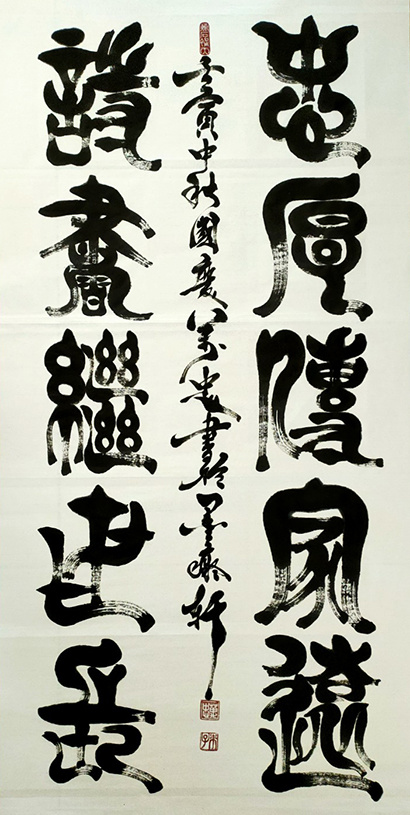 忠厚傳家遠
壬寅中秋國慶萬忠書於墨軒
詩書繼世長